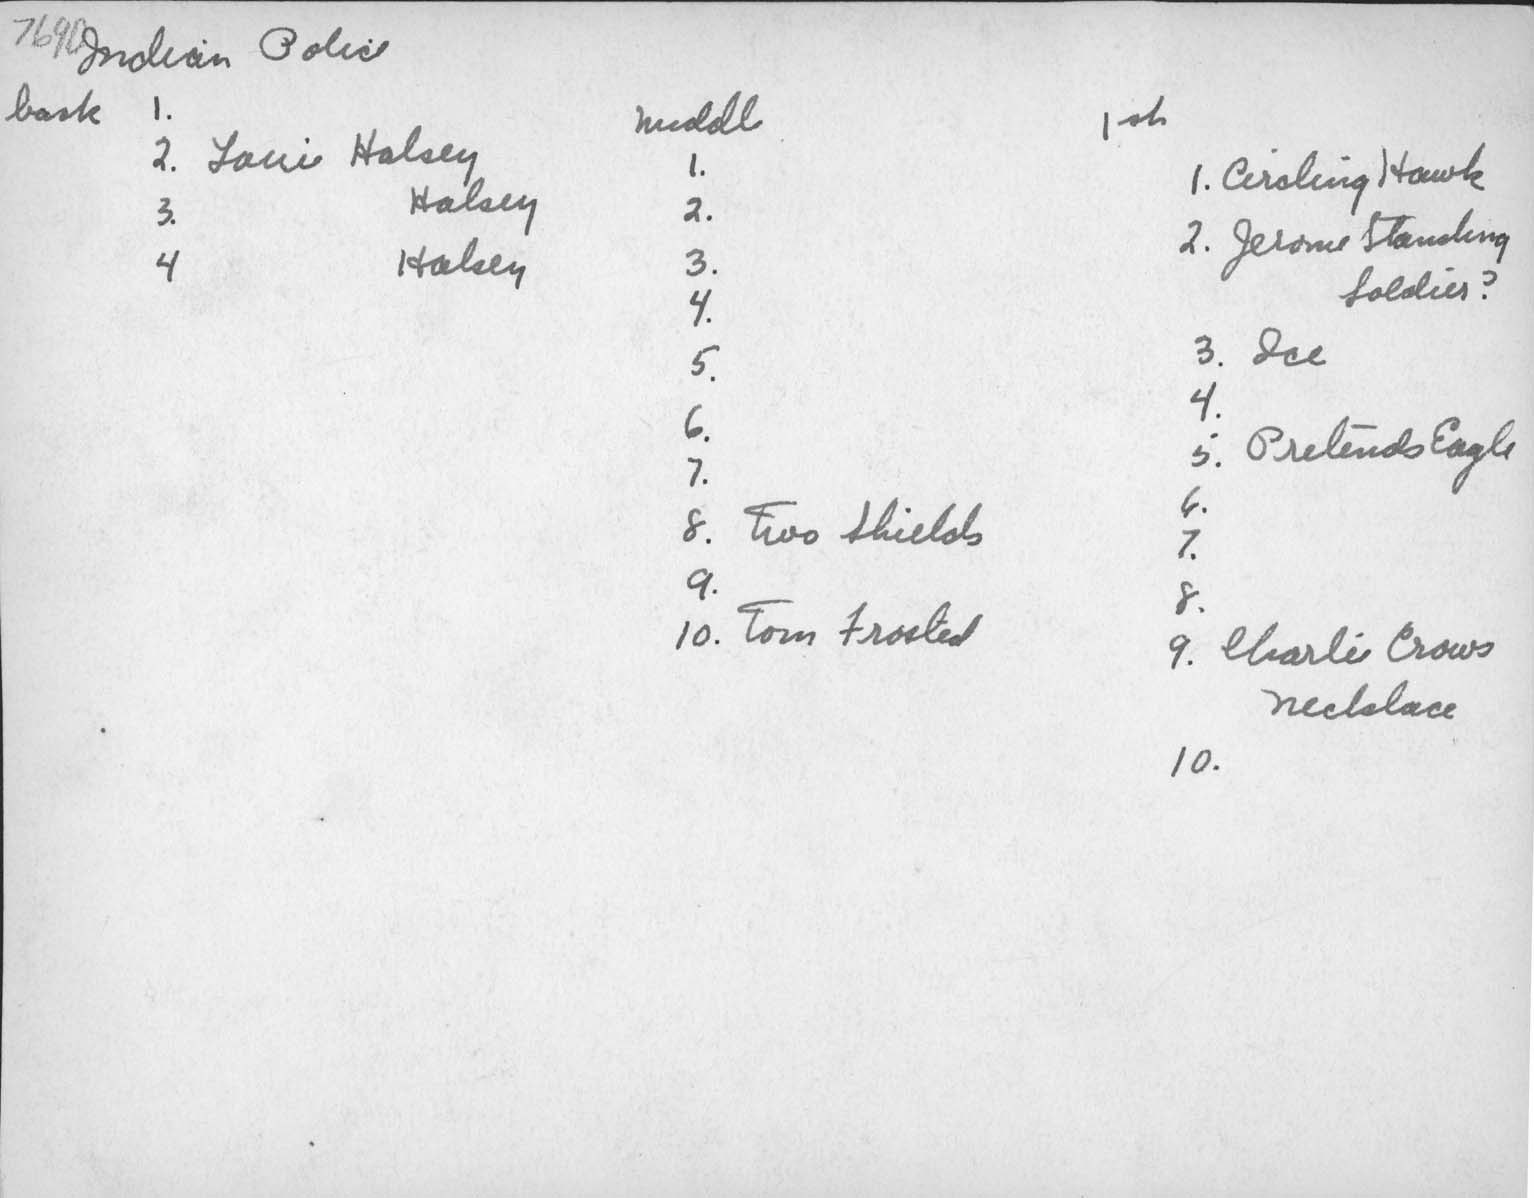 7690
Indian Police
back 1.
2. Louie Halsey
3. Halsey
4 Halsey
middle
1.
2.
3.
4.
5.
6.
7.
8. Two Shields
9.
10. Tom Frosted
1st
1. Circling Hawk
2. Jerome Standing
Soldier?
3. Ice
4.
5. Pretends Eagle
6.
7.
8.
9. Charlie Crows
Necklace
10.